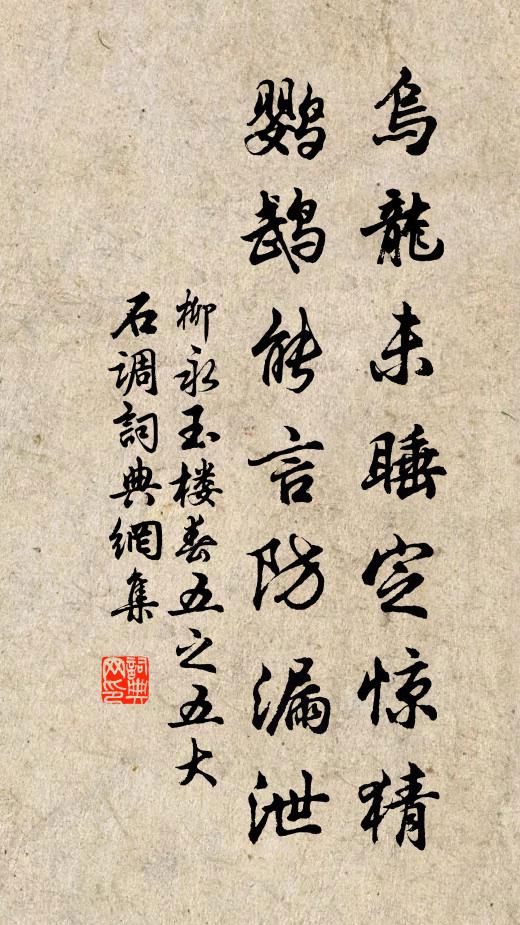 烏龍未睡定惊猜
鹦鹉能言防漏泄
柳永玉楼春五之五大
石调詞典網集
詞典網印